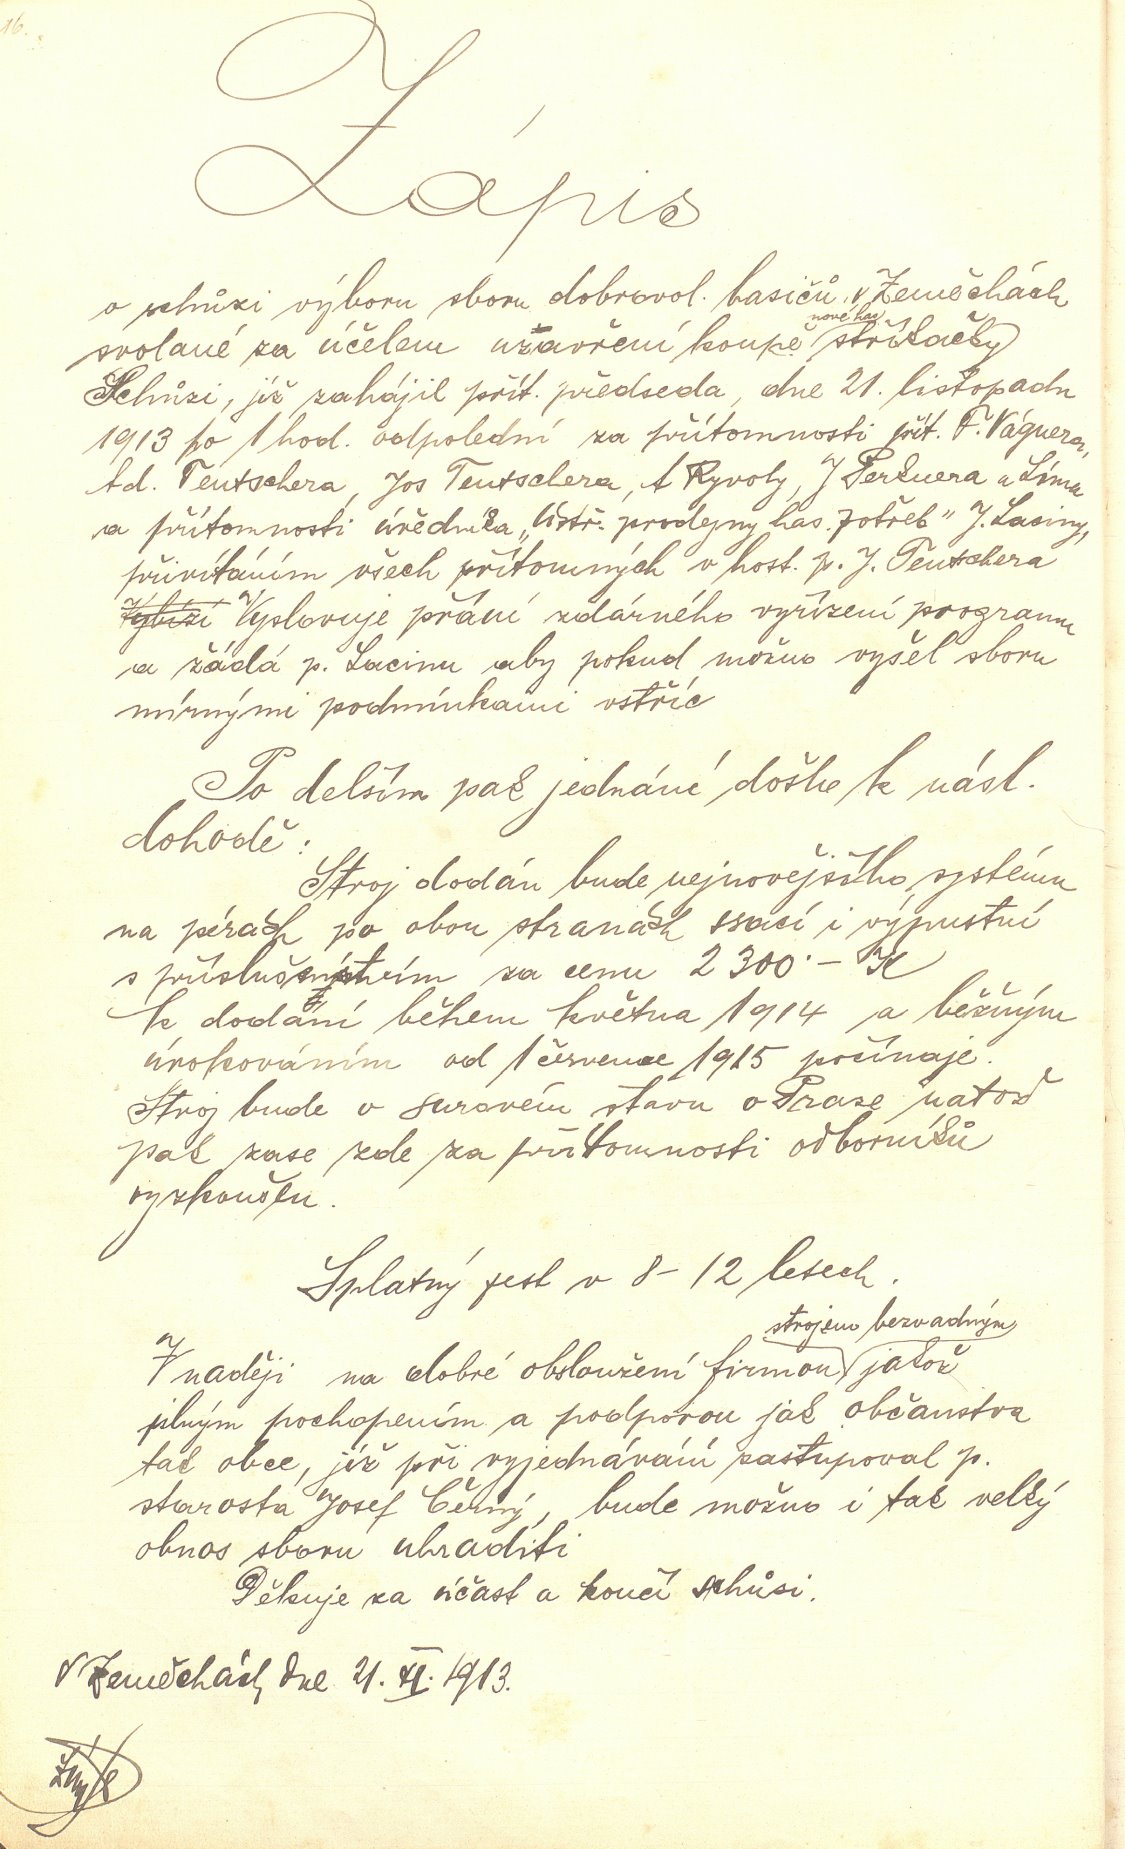 16.
Zápis
o schůzi výboru sboru dobrovol. hasičů v Zeměchách
nové has
svolané za účelem uzavření koupě stříkačky
Schůzi, již zahájil přít. předseda, dne 21. listopadu
1913 po 1 hod. odpolední za přítomnosti přít. F. Vágnera,
Ad. Teutschera, Jos Teutschera, A Ryvoly, J Perknera a Líma
a přítomnosti úředníka „Ústř. prodejny has. potřeb" J. Laciny,
přivítáním všech přítomných v host. p. J. Teutschera
Vybízí Vyslovuje přání zdárného vyřízení programu
a žádá p. Lacinu aby pokud možno vyšel sboru
mírnými podmínkami vstříc
Po delším pak jednání došlo k násl.
dohodě:
Stroj dodán bude nejnovějšího systému
na pérách po obou stranách ssací i výpustní
s příslušenstvím za cenu 2300·– K
k dodání během května 1914 a běžným
úrokováním od 1 července 1915 počínaje.
Stroj bude v surovém stavu v Praze natož
pak zase zde za přítomnosti odborníků
vyzkoušen.
Splatný jest v 8–12 letech.
strojem bezvadným
V naději na dobré obsloužení firmou jakož
plným pochopením a podporou jak občanstva
tak obce, již při vyjednávání zastupoval p.
starosta Josef Černý, bude možno i tak velký
obnos sboru uhraditi
Děkuje za účast a končí schůzi.
V Zeměchách dne 21. XI. 1913.